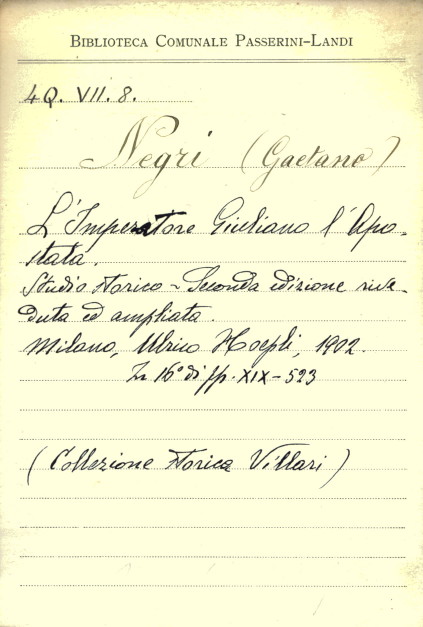 BIBLIOTECA COMUNALE PASSERINI-LANDI
4Q. VII. 8.
Negri (Gaetano)
L'Imperatore Giuliano l'Apo-
stata.
Studio storico - Seconda edizione rive-
duta ed ampliata.
Milano, Ulrico Hoepli, 1902.
In 16° di pp. XIX-523
(Collezione storica Villari)